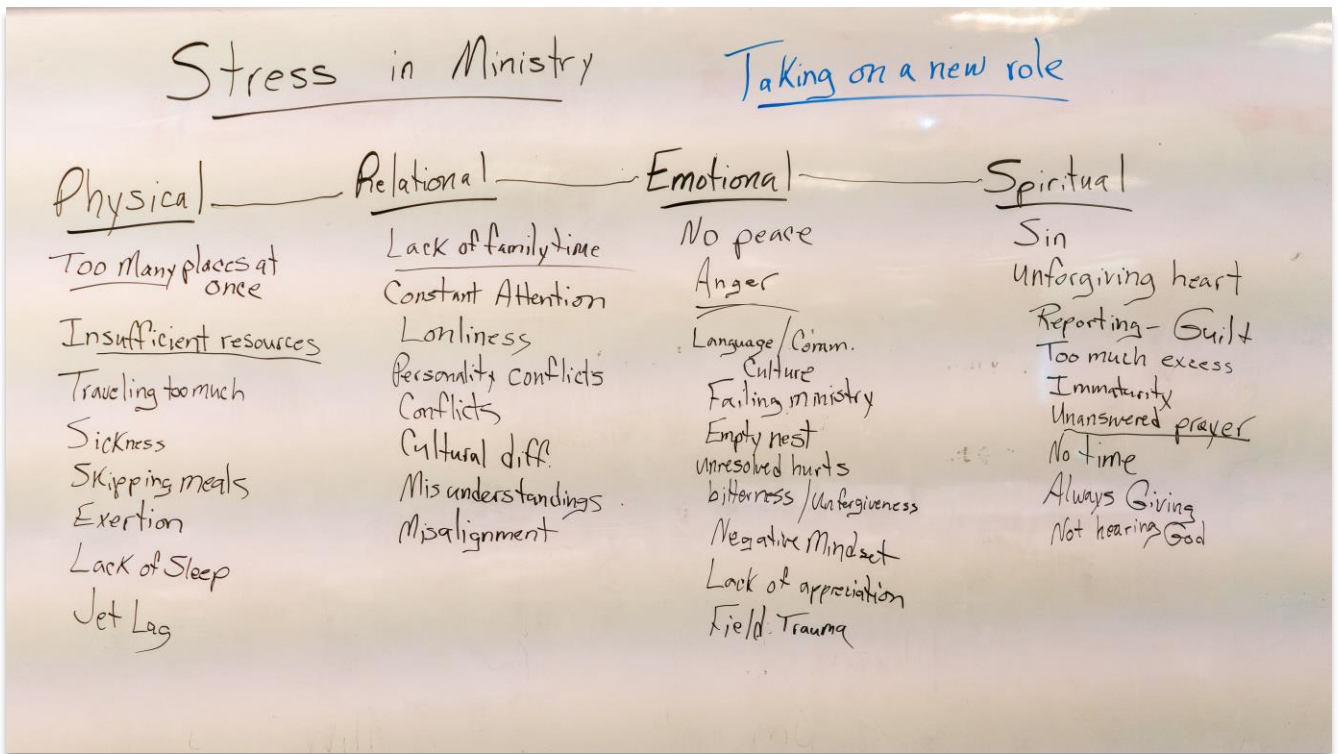 Stress in Ministry
Taking on a new role
Physical
Too Many places at
once
Insufficient resources
Traveling too much
Sickness
Skipping meals
Exertion
Lack of Sleep
Jet Lag
Relational
Lack of family time
Constant Attention
Lonliness
Personality conflicts
Conflicts
Cultural diff.
Misunderstandings
Misalignment
Emotional
No peace
Anger
Language/Comm.
Culture
Failing ministry
Empty nest
unresolved hurts
bitterness/Unforgiveness
Negative Mindset
Lack of appreciation
Field Trauma
Spiritual
Sin
Unforgiving heart
Reporting - Guilt
Too much excess
Immaturity
Unanswered prayer
No time
Always Giving
Not hearing God